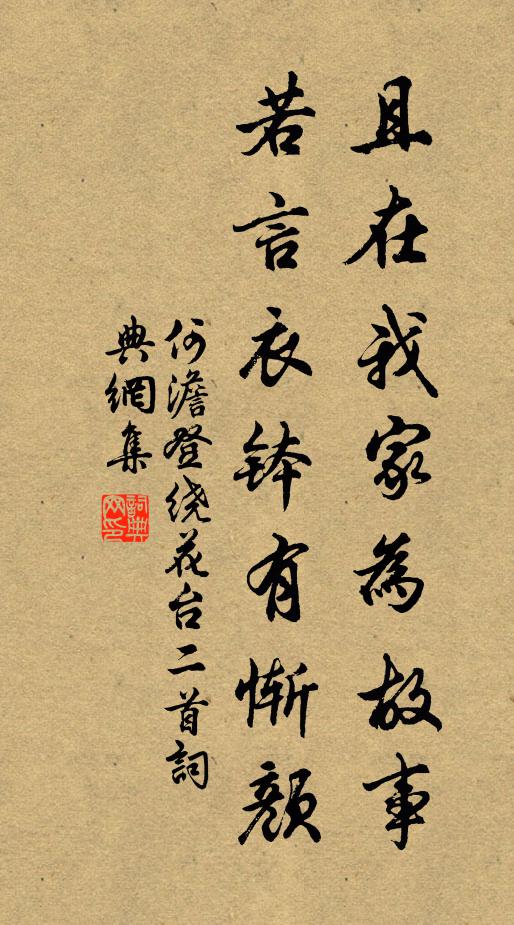 且在我家為故事
若言衣鉢有慚顔
何澹登绕花台二首詞
典網集
詞典网印